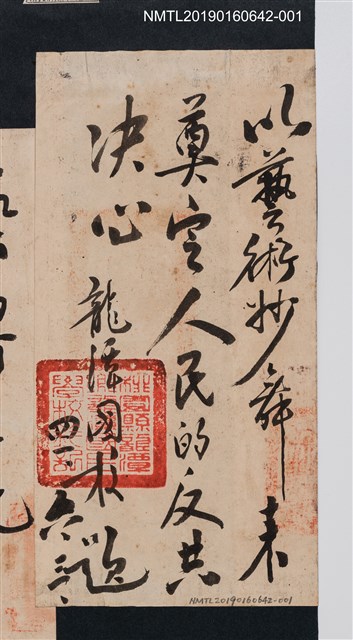 NMTL20190160642-001
以藝術妙舞来
奠定人民的反共
决心
龍潭國校題
NMTL20190160642-001